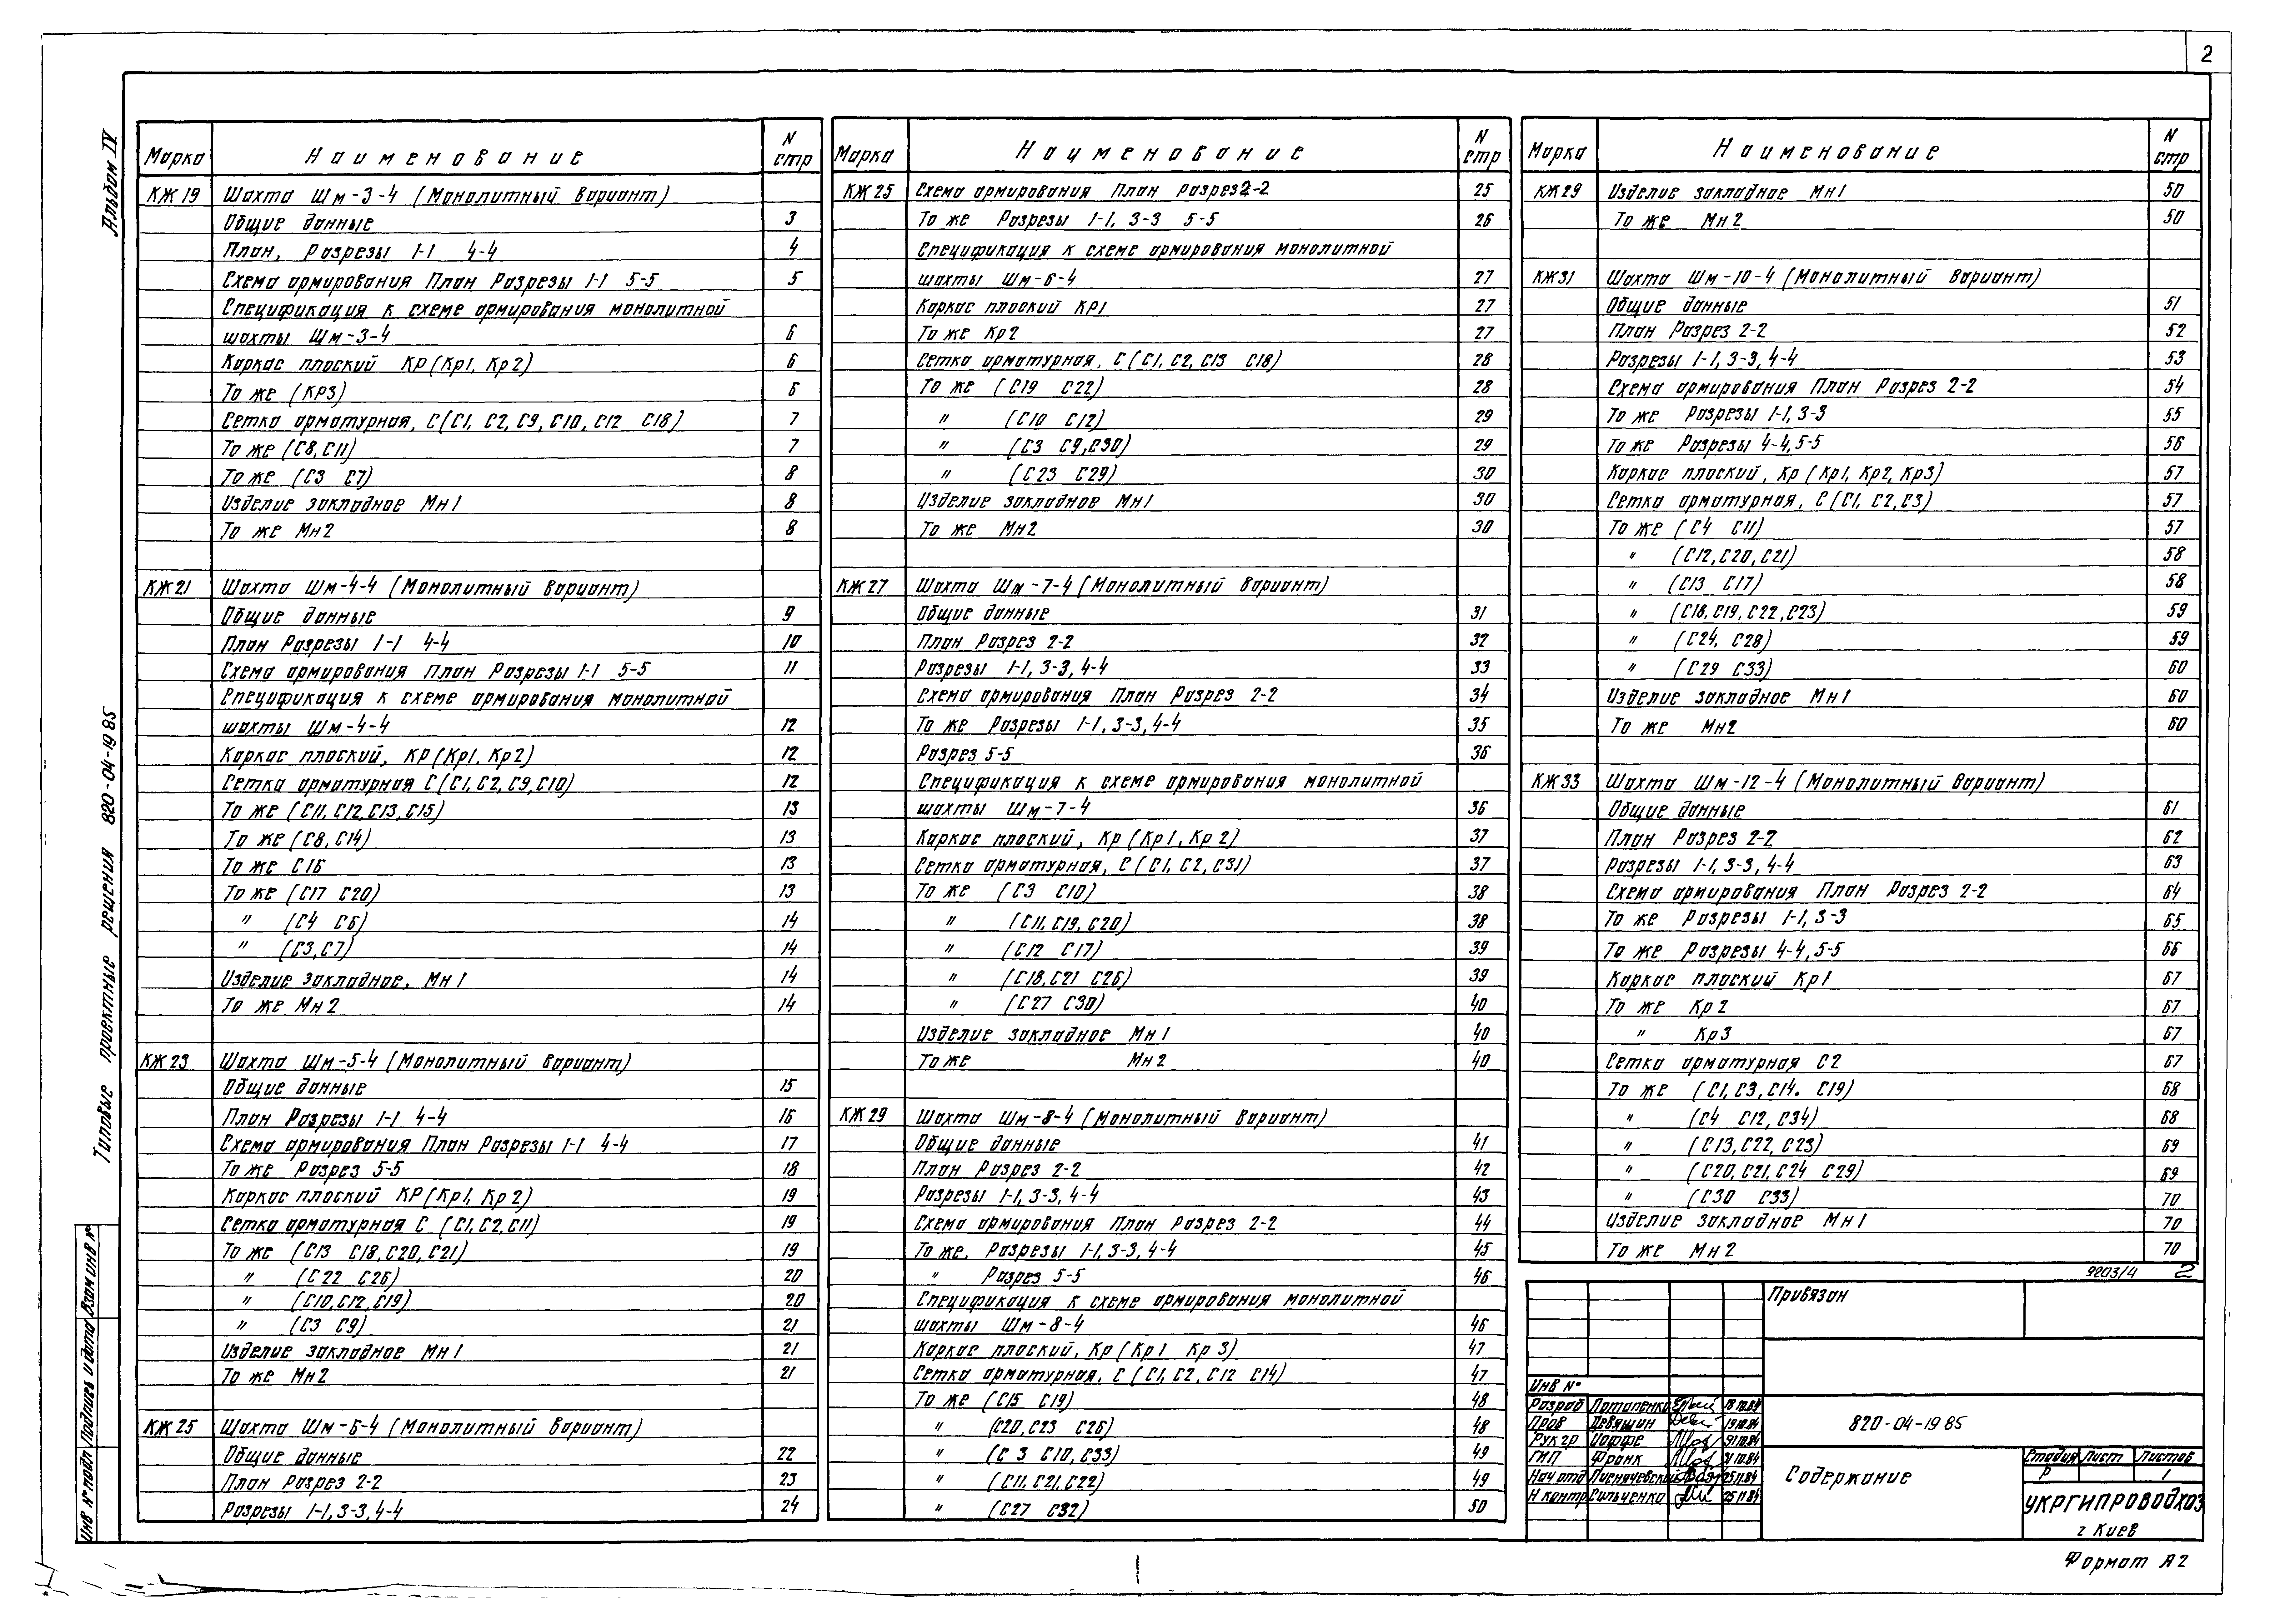 2
Альбом IV
Типовые проектные решения 820-04-19 85
Марка Наименование N стр
КЖ 19 Шахта Шм-3-4 (Монолитный вариант)
Общие данные 3
План, Разрезы 1-1 4-4 4
Схема армирования План Разрезы 1-1 5-5 5
Спецификация к схеме армирования монолитной
шахты Шм-3-4 6
Каркас плоский КР (Кр1, Кр2) 6
То же (КР3) 6
Сетка арматурная, С (С1, С2, С9, С10, С12 С18) 7
То же (С8, С11) 7
То же (С3 С7) 8
Изделие закладное Мн1 8
То же Мн2 8
КЖ 21 Шахта Шм-4-4 (Монолитный вариант)
Общие данные 9
План Разрезы 1-1 4-4 10
Схема армирования План Разрезы 1-1 5-5 11
Спецификация к схеме армирования монолитной
шахты Шм-4-4 12
Каркас плоский, КР (Кр1, Кр2) 12
Сетка арматурная С (С1, С2, С9, С10) 12
То же (С11, С12, С13, С15) 13
То же (С8, С14) 13
То же С16 13
То же (С17 С20) 13
" (С4 С6) 14
" (С3, С7) 14
Изделие закладное, Мн1 14
То же Мн2 14
КЖ 23 Шахта Шм-5-4 (Монолитный вариант)
Общие данные 15
План Разрезы 1-1 4-4 16
Схема армирования План Разрезы 1-1 4-4 17
То же Разрез 5-5 18
Каркас плоский КР (Кр1, Кр2) 19
Сетка арматурная С (С1, С2, С11) 19
То же (С13 С18, С20, С21) 19
" (С22 С26) 20
" (С10, С12, С19) 20
" (С3 С9) 21
Изделие закладное Мн1 21
То же Мн2 21
КЖ 25 Шахта Шм-6-4 (Монолитный вариант)
Общие данные 22
План Разрез 2-2 23
Разрезы 1-1, 3-3, 4-4 24
Марка Наименование N стр
КЖ 25 Схема армирования План Разрез 2-2 25
То же Разрезы 1-1, 3-3 5-5 26
Спецификация к схеме армирования монолитной
шахты Шм-6-4 27
Каркас плоский КР1 27
То же Кр2 27
Сетка арматурная, С (С1, С2, С13 С18) 28
То же (С19 С22) 28
" (С10 С12) 29
" (С3 С9, С30) 29
" (С23 С29) 30
Изделие закладное Мн1 30
То же Мн2 30
КЖ 27 Шахта Шм-7-4 (Монолитный вариант)
Общие данные 31
План Разрез 2-2 32
Разрезы 1-1, 3-3, 4-4 33
Схема армирования План Разрез 2-2 34
То же Разрезы 1-1, 3-3, 4-4 35
Разрез 5-5 36
Спецификация к схеме армирования монолитной
шахты Шм-7-4 36
Каркас плоский, Кр (Кр1, Кр2) 37
Сетка арматурная, С (С1, С2, С31) 37
То же (С3 С10) 38
" (С11, С19, С20) 38
" (С12 С17) 39
" (С18, С21 С26) 39
" (С27 С30) 40
Изделие закладное Мн1 40
То же Мн2 40
КЖ 29 Шахта Шм-8-4 (Монолитный вариант)
Общие данные 41
План Разрез 2-2 42
Разрезы 1-1, 3-3, 4-4 43
Схема армирования План Разрез 2-2 44
То же, Разрезы 1-1, 3-3, 4-4 45
" Разрез 5-5 46
Спецификация к схеме армирования монолитной
шахты Шм-8-4 46
Каркас плоский, Кр (Кр1 Кр3) 47
Сетка арматурная, С (С1, С2, С12 С14) 47
То же (С15 С19) 48
" (С20, С23 С26) 48
" (С3 С10, С33) 49
" (С11, С21, С22) 49
" (С27 С32) 50
Марка Наименование N стр
КЖ 29 Изделие закладное Мн1 50
То же Мн2 50
КЖ 31 Шахта Шм-10-4 (Монолитный вариант)
Общие данные 51
План Разрез 2-2 52
Разрезы 1-1, 3-3, 4-4 53
Схема армирования План Разрез 2-2 54
То же Разрезы 1-1, 3-3 55
То же Разрезы 4-4, 5-5 56
Каркас плоский, Кр (Кр1, Кр2, Кр3) 57
Сетка арматурная, С (С1, С2, С3) 57
То же (С4 С11) 57
" (С12, С20, С21) 58
" (С13 С17) 58
" (С18, С19, С22, С23) 59
" (С24, С28) 59
" (С29 С33) 60
Изделие закладное Мн1 60
То же Мн2 60
КЖ 33 Шахта Шм-12-4 (Монолитный вариант)
Общие данные 61
План Разрез 2-2 62
Разрезы 1-1, 3-3, 4-4 63
Схема армирования План Разрез 2-2 64
То же Разрезы 1-1, 3-3 65
То же Разрезы 4-4, 5-5 66
Каркас плоский Кр1 67
То же Кр2 67
" Кр3 67
Сетка арматурная С2 67
То же (С1, С3, С14. С19) 68
" (С4 С12, С34) 68
" (С13, С22, С23) 69
" (С20, С21, С24 С29) 69
" (С30 С33) 70
Изделие закладное Мн1 70
То же Мн2 70
9203/4 2
Привязан
Инв №
Разраб Потапенко 18.10.84
Пров Девяшин 19.10.84
Рук гр Иоффе 31.10.84
ГИП Франк 31.10.84
Нач отд 25.11.84
Н контр Сильченко 25.11.84
820-04-19 85
Содержание
Стадия Лист Листов
Р 1
УКРГИПРОВОДХОЗ
г Киев
Формат А2
Инв № подл Подпись и дата Взам инв №